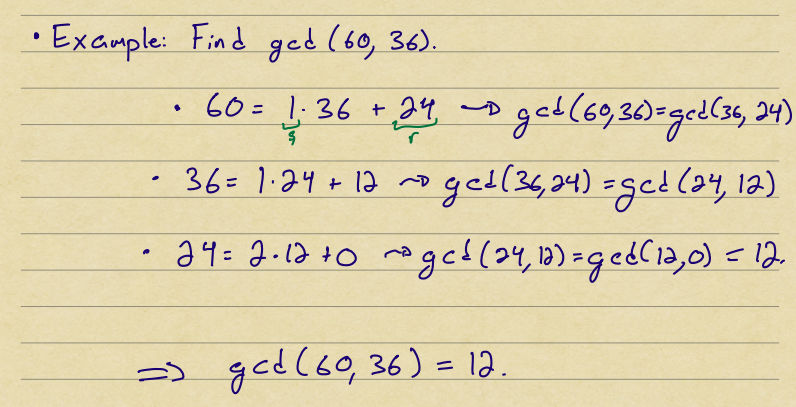 • Example: Find gcd (60, 36).
• 60 = 1 · 36 + 24 ⇝ gcd(60,36)=gcd(36, 24)
q r
• 36 = 1·24 + 12 ⇝ gcd(36,24) = gcd(24, 12)
• 24 = 2·12 + 0 ⇝ gcd(24,12) = gcd(12,0) = 12.
⟹ gcd(60, 36) = 12.